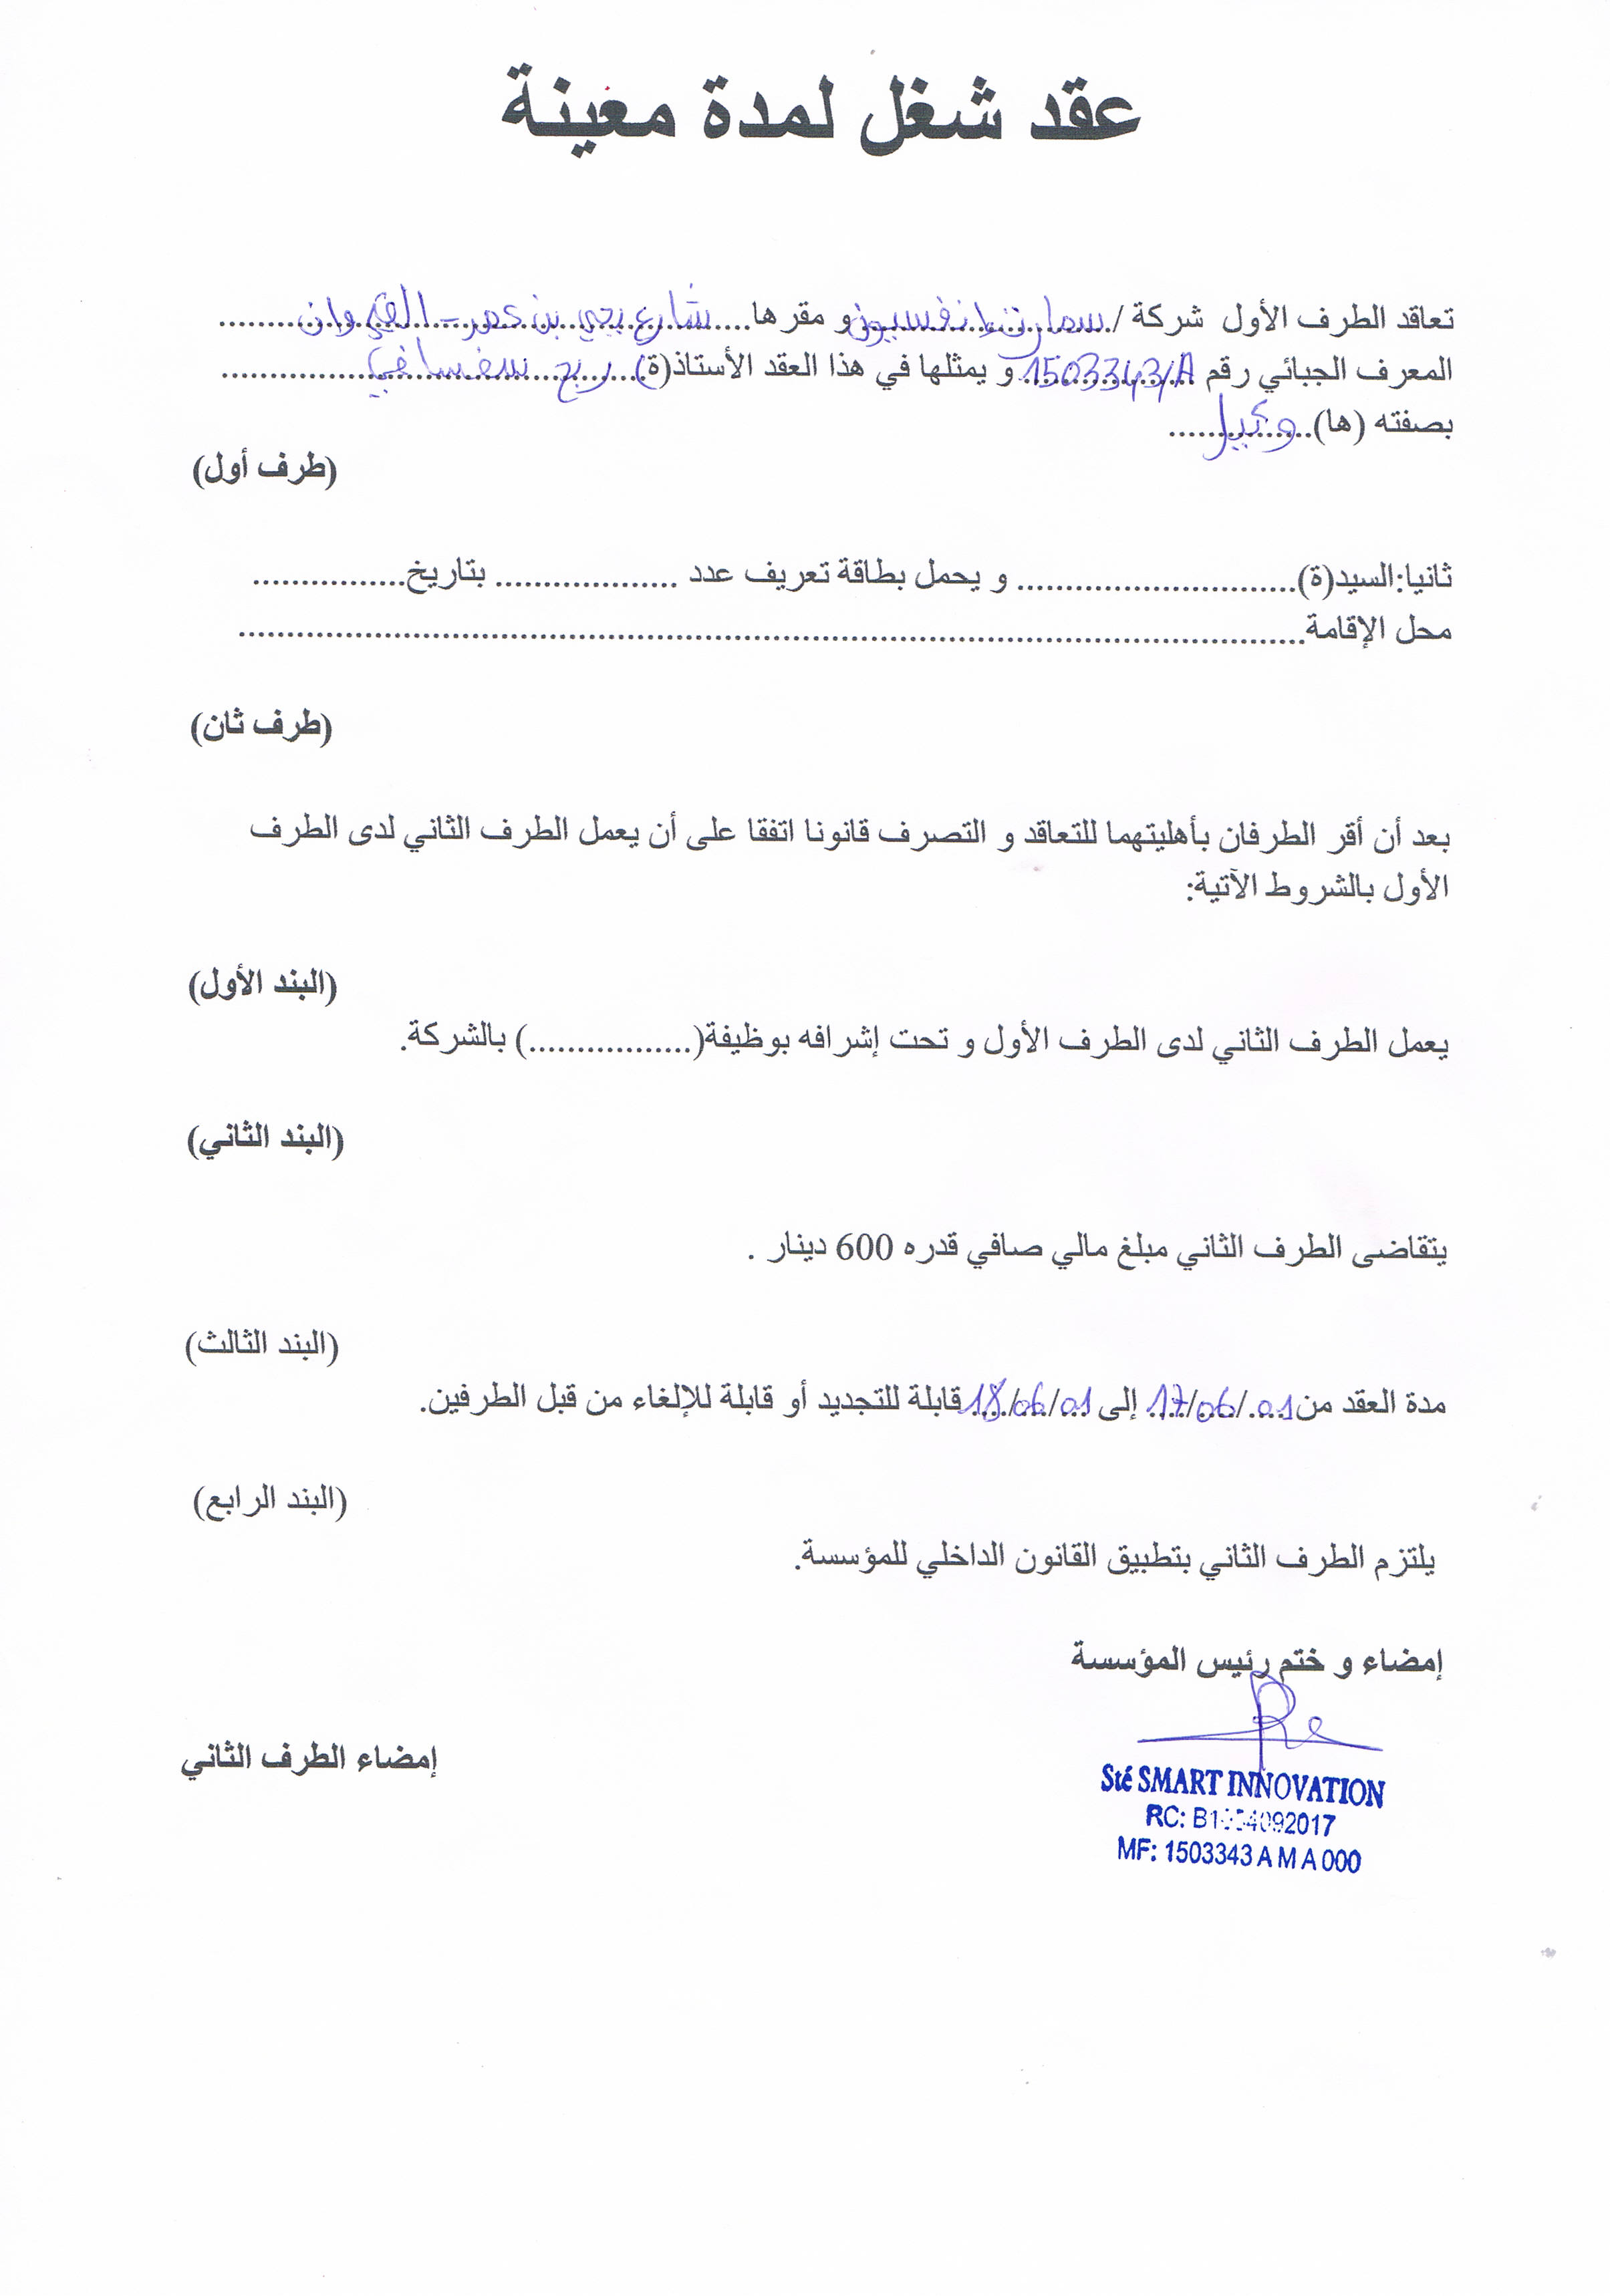 عقد شغل لمدة معينة
تعاقد الطرف الأول شركة /سمارت إنفسيون و مقرها.....شارع يحي بن عمر - القيروان.........
المعرف الجبائي رقم 1503343/A و يمثلها في هذا العقد الأستاذ(ة) ربح سفسافي..............
بصفته (ها)...وكيل.......
(طرف أول)
ثانيا:السيد(ة)............................ و يحمل بطاقة تعريف عدد .................. بتاريخ...............
محل الإقامة.........................................................................................................
(طرف ثان)
بعد أن أقر الطرفان بأهليتهما للتعاقد و التصرف قانونا اتفقا على أن يعمل الطرف الثاني لدى الطرف
الأول بالشروط الآتية:
(البند الأول)
يعمل الطرف الثاني لدى الطرف الأول و تحت إشرافه بوظيفة(................) بالشركة.
(البند الثاني)
يتقاضى الطرف الثاني مبلغ مالي صافي قدره 600 دينار .
(البند الثالث)
مدة العقد من 01/06/17 إلى 01/06/18 قابلة للتجديد أو قابلة للإلغاء من قبل الطرفين.
(البند الرابع)
يلتزم الطرف الثاني بتطبيق القانون الداخلي للمؤسسة.
إمضاء و ختم رئيس المؤسسة
إمضاء الطرف الثاني
Sté SMART INNOVATION
RC:
MF: 1503343 A M A 000